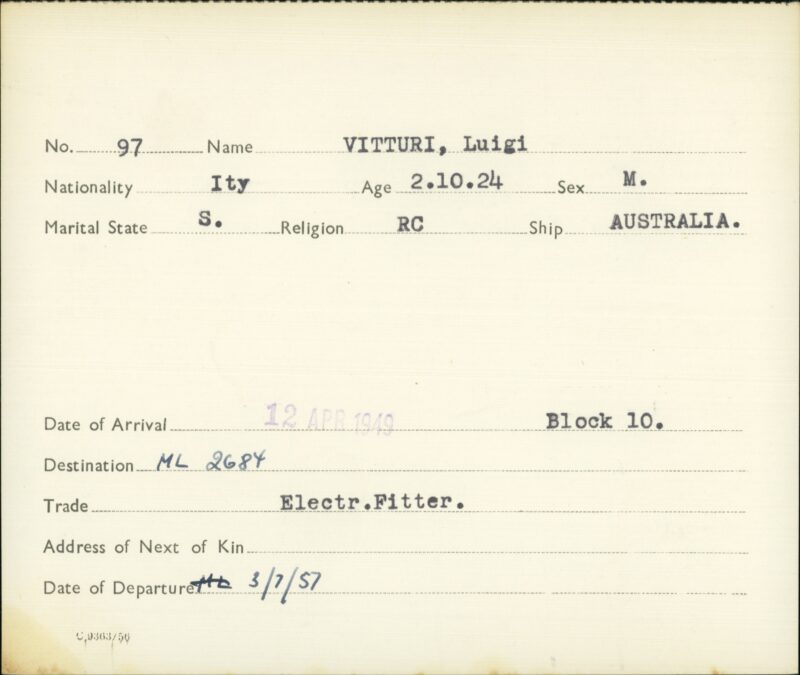 No. 97 Name VITTURI, Luigi
Nationality Ity Age 2.10.24 Sex M.
Marital State S. Religion RC Ship AUSTRALIA.
Date of Arrival 12 APR 1949 Block 10.
Destination ML 2684
Trade Electr.Fitter.
Address of Next of Kin
Date of Departure ML 3/7/57
C.9363/56